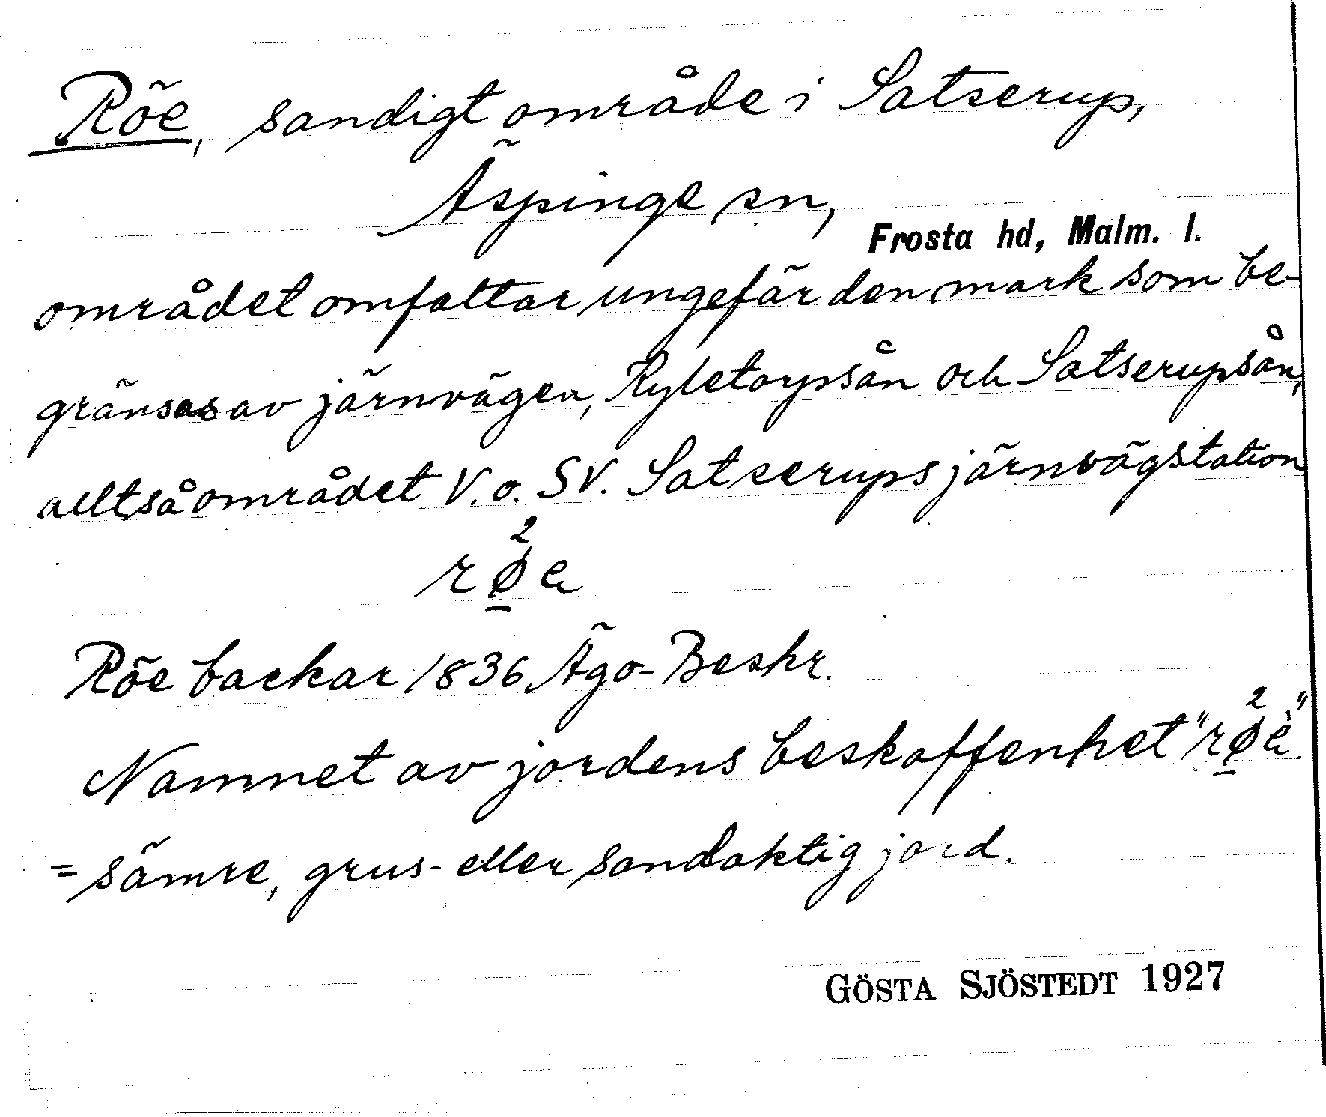 Röe, sandigt område i Satserup,
Äspinge sn,
Frosta hd, Malm. l.
området omfattar ungefär den mark som be-
gränsas av järnvägen, Ryletorpsån och Satserupsån,
alltså området V. o. SV. Satserups järnvägstation
røe
Röe backar 1836 Ägo-Beskr.
Namnet av jordens beskaffenhet "røe"
= sämre, grus- eller sandaktig jord.
GÖSTA SJÖSTEDT 1927